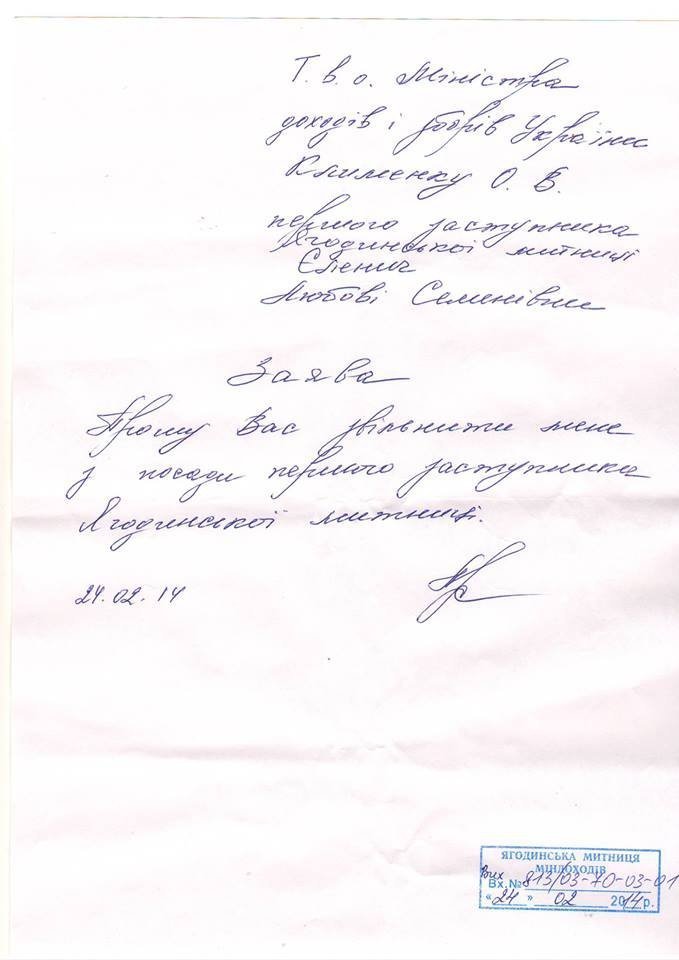 Т.в.о. Міністра
доходів і зборів України
Клименку О. В.
першого заступника
Ягодинської митниці
Єленич
Любові Семенівни
Заява
Прошу Вас звільнити мене
з посади першого заступника
Ягодинської митниці.
24.02.14
ЯГОДИНСЬКА МИТНИЦЯ
МІНДОХОДІВ
Вих
Вх.№ 813/03-70-03-01
«24» 02 2014 р.